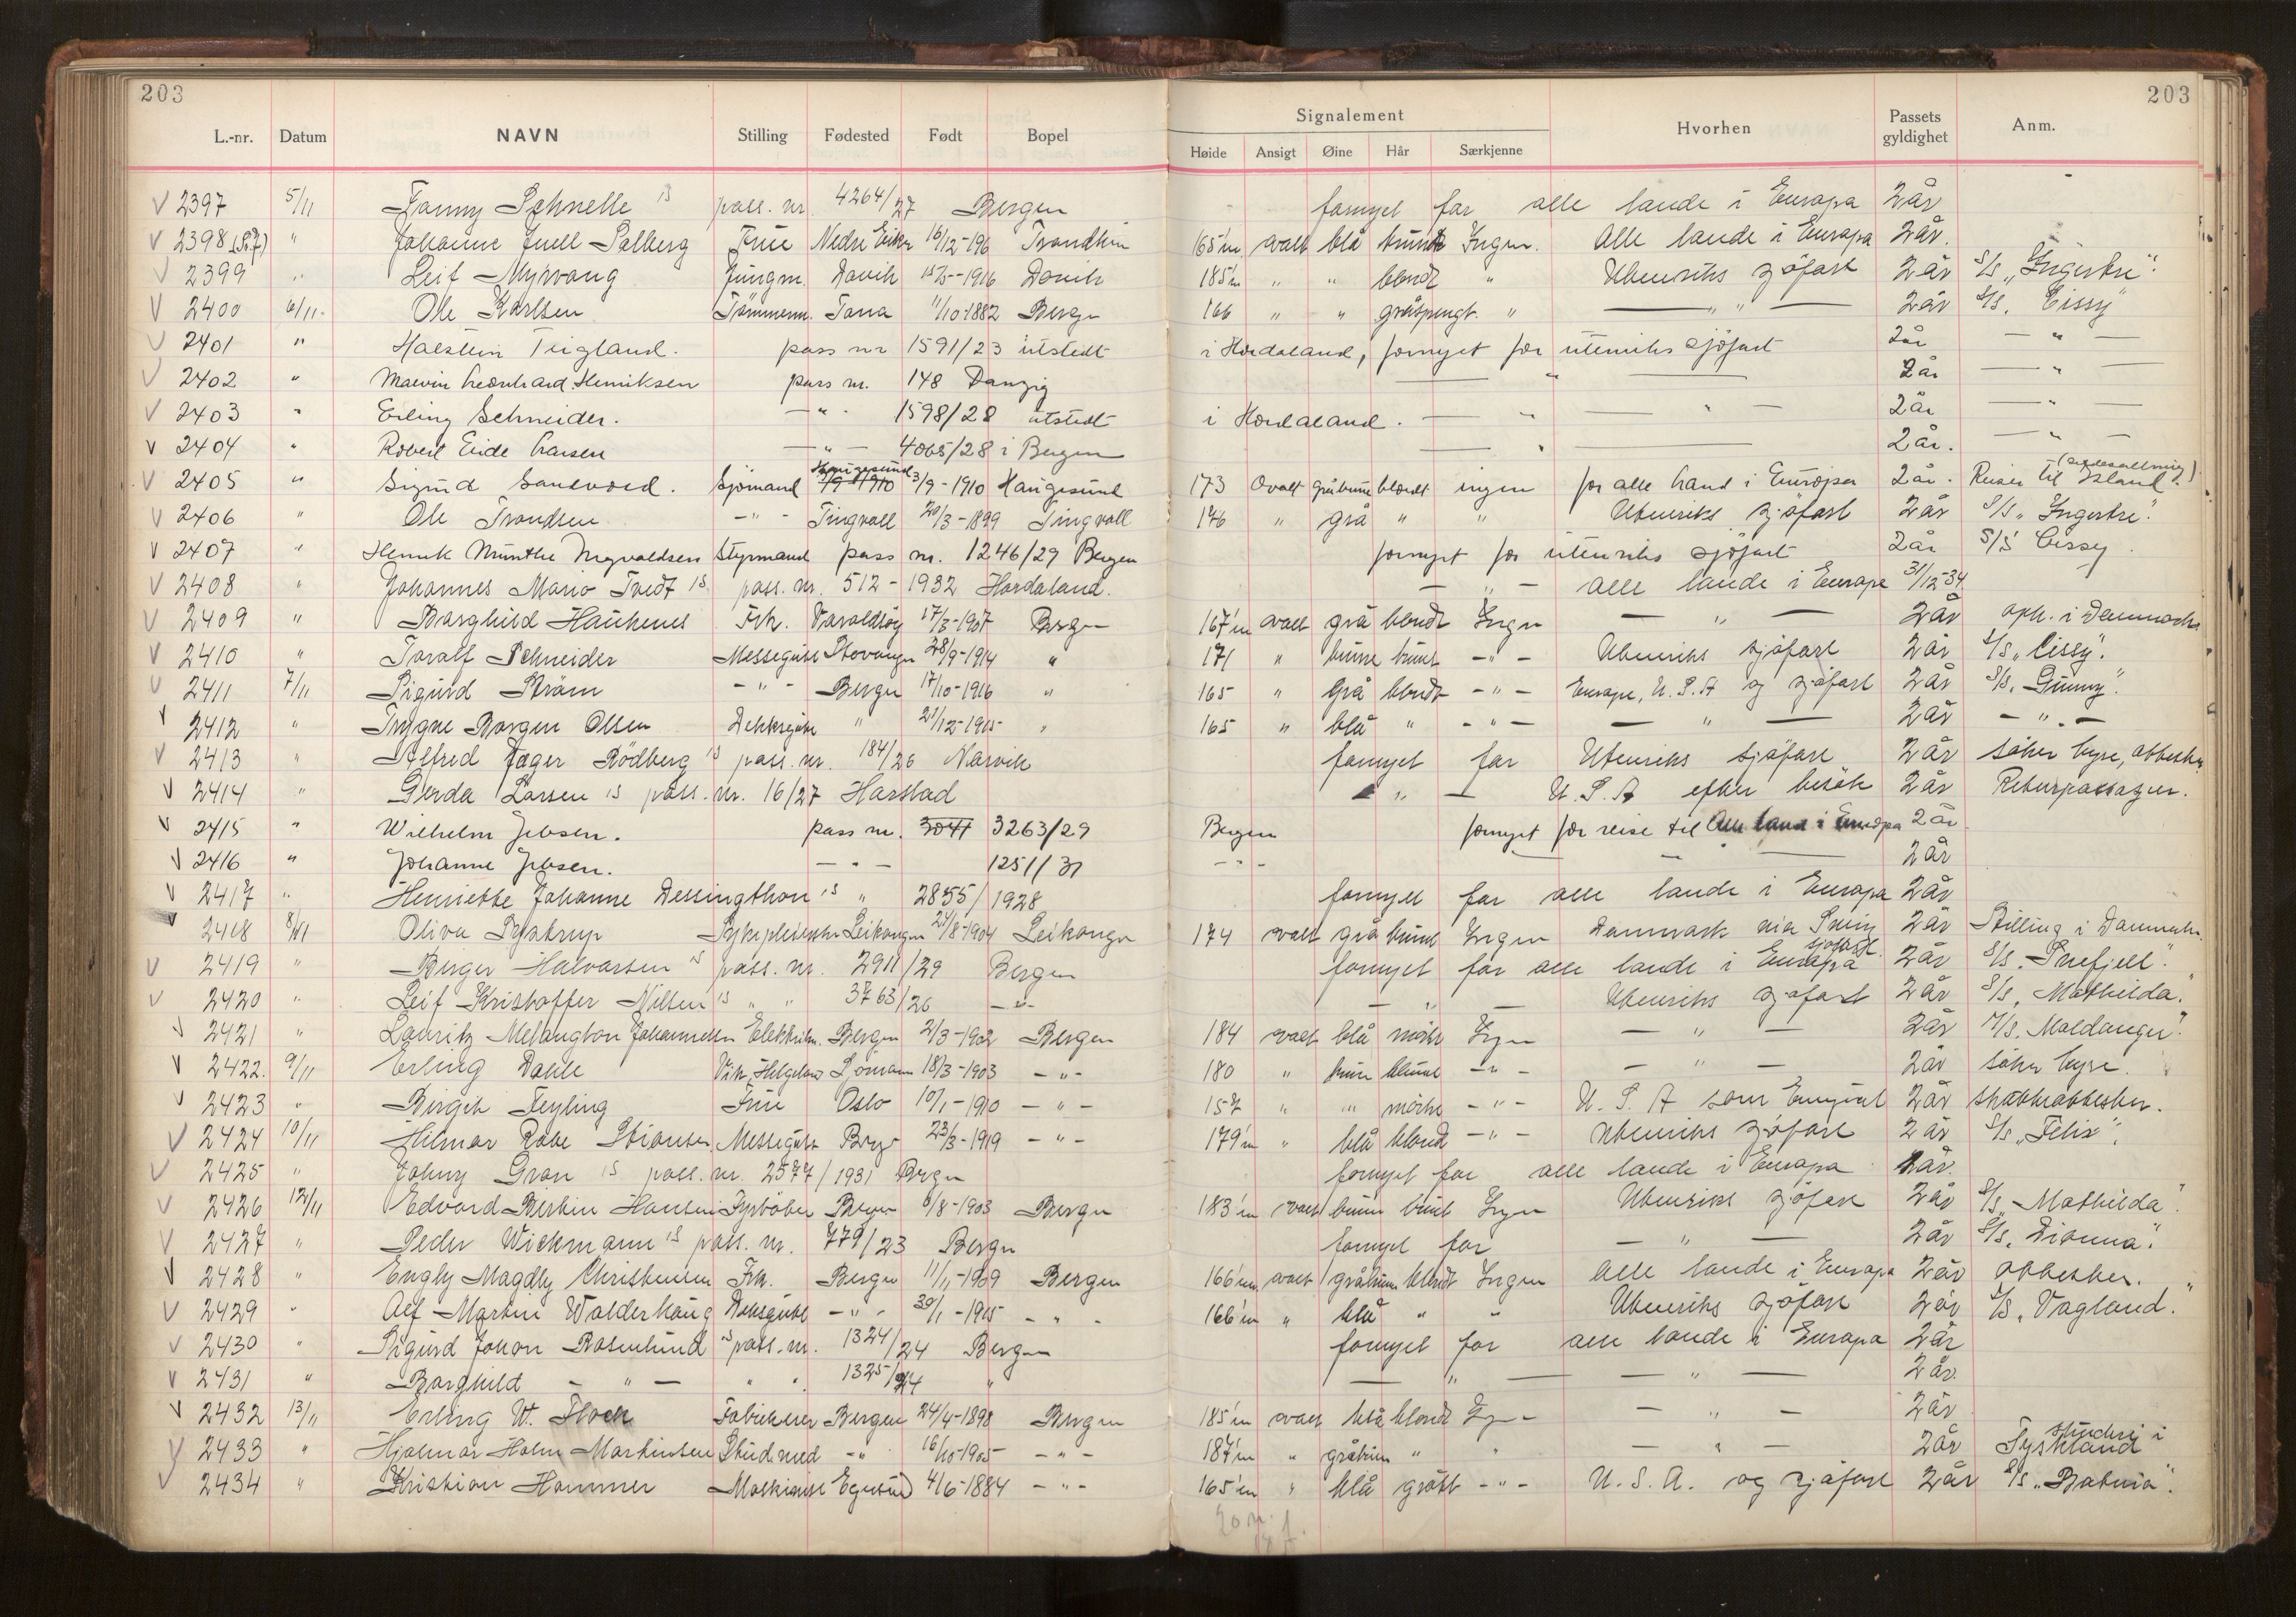 203 203
L.-nr. Datum NAVN Stilling Fødested Født Bopel Signalement Hvorhen Passets gyldighet Anm.
Høide Ansigt Øine Hår Særkjenne
2397 5/11 Fanny Schnelle pass. nr. 4264/27 Bergen fornyet for alle lande i Europa 2 år
2398 " Johanne Juell Solberg Frue Nedre Eiker 16/12-196 Trondhim 165 ovalt blå brunt Ingen. Alle lande i Europa 2 år.
2399 " Leif Myrvang Jungm. Davik 1916 Davik 185 " " blondt " Utenriks sjöfart 2 år S/s "Ingertre".
2400 6/11. Ole Karlsen Tömmerm. Tana 11/10-1882 Bergen 166 " " gråsprengt. " — " — 2 år S/s. Cissy"
2401 " Halstein Tigland. pass nr 1591/23 utstedt i Hordaland, fornyet for utenriks sjöfart 2 år — " —
2402 " Malvin Leonhard Henriksen pass nr. 148 Danzig — " — 2 år — " —
2403 " Erling Schneider. — " - 1598/28 utstedt i Hordaland. — " — " — 2 år — " —
2404 " Robert Eide Larsen — " — 4065/28 i Bergen — " — 2 år. — " —
2405 " Sigurd Sandvold. Sjömand Haugesund 3/9-1910 Haugesund 173 Ovalt gråbrune blondt ingen for alle land i Europa 2 år. Reiser til Island.
2406 " Ole Trondsen — " - Tingvoll 20/3-1899 Tingvoll 176 " grå " " Utenriks sjöfart 2 år S/s "Ingertre".
2407 " Henrik Munthe Myrvoldsen Styrmand pass nr. 1246/29 Bergen fornyet for utenriks sjöfart 2 år S/S Cissy.
2408 " Johannes Mario Tvedt pass. nr. 512-1932 Hordaland. — " — alle lande i Europa 31/12-34.
2409 " Borghild Haukenes Frk. Varaldsöy 17/3-1907 Bergen 167 ovalt grå blondt Ingen — " — 2 år oph. i Danmark
2410 " Toralf Schneider Messegutt Stavanger 28/9-1914 " 171 " brune brunt - " - Utenriks sjöfart 2 år S/s "Cissy".
2411 7/11 Sigurd Ström - " - Bergen 17/10-1916 " 165 " Grå blondt - " - Europa, U.S.A og sjöfart 2 år S/s. Gunny".
2412 " Trygve Borgen Olsen Dekksgutt " 21/12-1915 " 165 " blå " - " - — " — 2 år - " -
2413 " Alfred Jæger Rödberg pass. nr. 184/26 Narvik fornyet for Utenriks sjöfart 2 år söker hyre,
2414 " Gerda Larsen pass. nr. 16/27 Harstad — " — U.S.A efter besök 2 år Returpassager.
2415 " Wilhelm Jebsen. pass nr. 3263/29 Bergen fornyet for reise til Alle land i Europa 2 år
2416 " Johanne Jebsen. — " — 1251/31 - " - — " — 2 år
2417 " Henriette Johanne Dessingthon " 2855/1928 fornyett for alle lande i Europa 2 år
2418 8/11 Oliva Systrup Sykepleierske Leikanger 21/8-1904 Leikanger 174 ovalt grå brunt Ingen Danmark 2 år Stilling i Danmark.
2419 " Birger Halvorsen pass. nr. 2911/29 Bergen fornyet for alle lande i Europa sjöfart. 2 år S/s. Snefjell".
2420 " Leif Kristoffer Nilsen " " 3763/26 - " - — " — Utenriks sjöfart 2 år S/s. Mathilda".
2421 " Lauritz Melangton Johannessen Elektriker. Bergen 2/3-1902 Bergen 184 ovalt blå mörkt Ingen — " — 2 år M/s. Moldanger".
2422. 9/11 Erling Dahle Vik, Helgeland Sjömann 18/3-1903 - " - 180 " brune blondt - " - — " — 2 år söker hyre.
2423 " Birgit Feyling Frue Oslo 10/1-1910 - " - 157 " " mörke - " - U.S.A som Emigrant 2 år skatteattester.
2424 10/11 Hilmar Råbe Stiansen Messegutt Bergen 23/3-1919 - " - 179 " blå blond - " - Utenriks sjöfart 2 år S/s "Felix".
2425 " Johny Gran pass. nr. 2577/1931 Bergen fornyet for alle lande i Europa 2 år.
2426 12/11 Edvard Bertin Hansen Fyrböter Bergen 6/8-1903 Bergen 183 ovalt brune brunt Ingen Utenriks sjöfart 2 år S/s "Mathilda".
2427 " Peder Wickmann pass. nr. 779/23 Bergen fornyet for — " — 2 år S/s. Dianna".
2428 " Engly Magdly Christensen Frk. Bergen 11/11-1909 Bergen 166 ovalt gråbrune blondt Ingen Alle lande i Europa 2 år attester.
2429 " Alf Martin Walderhaug Deksgutt - " - 30/1-1915 - " - 166 " blå " " Utenriks sjöfart 2 år S/s. Vagland".
2430 " Sigurd Johan Rosenlund pass. nr. 1324/24 Bergen fornyet for alle lande i Europa 2 år
2431 " Borghild — " — " " 1325/24 " — " — — " — 2 år.
2432 13/11 Erling W. Flock Fabrikeier Bergen 24/4-1898 Bergen 185 ovalt blå blondt Ingen — " — 2 år
2433 " Hjalmar Holm Martinsen Stud med - " 16/10-1905 - " - 187 " gråbrun " " — " — 2 år studeri i Tyskland
2434 " Kristian Hammer Maskinist Egersund 4/6-1884 - " - 165 " blå grått - " - U.S.A. og sjöfart 2 år S/s "Batavia".